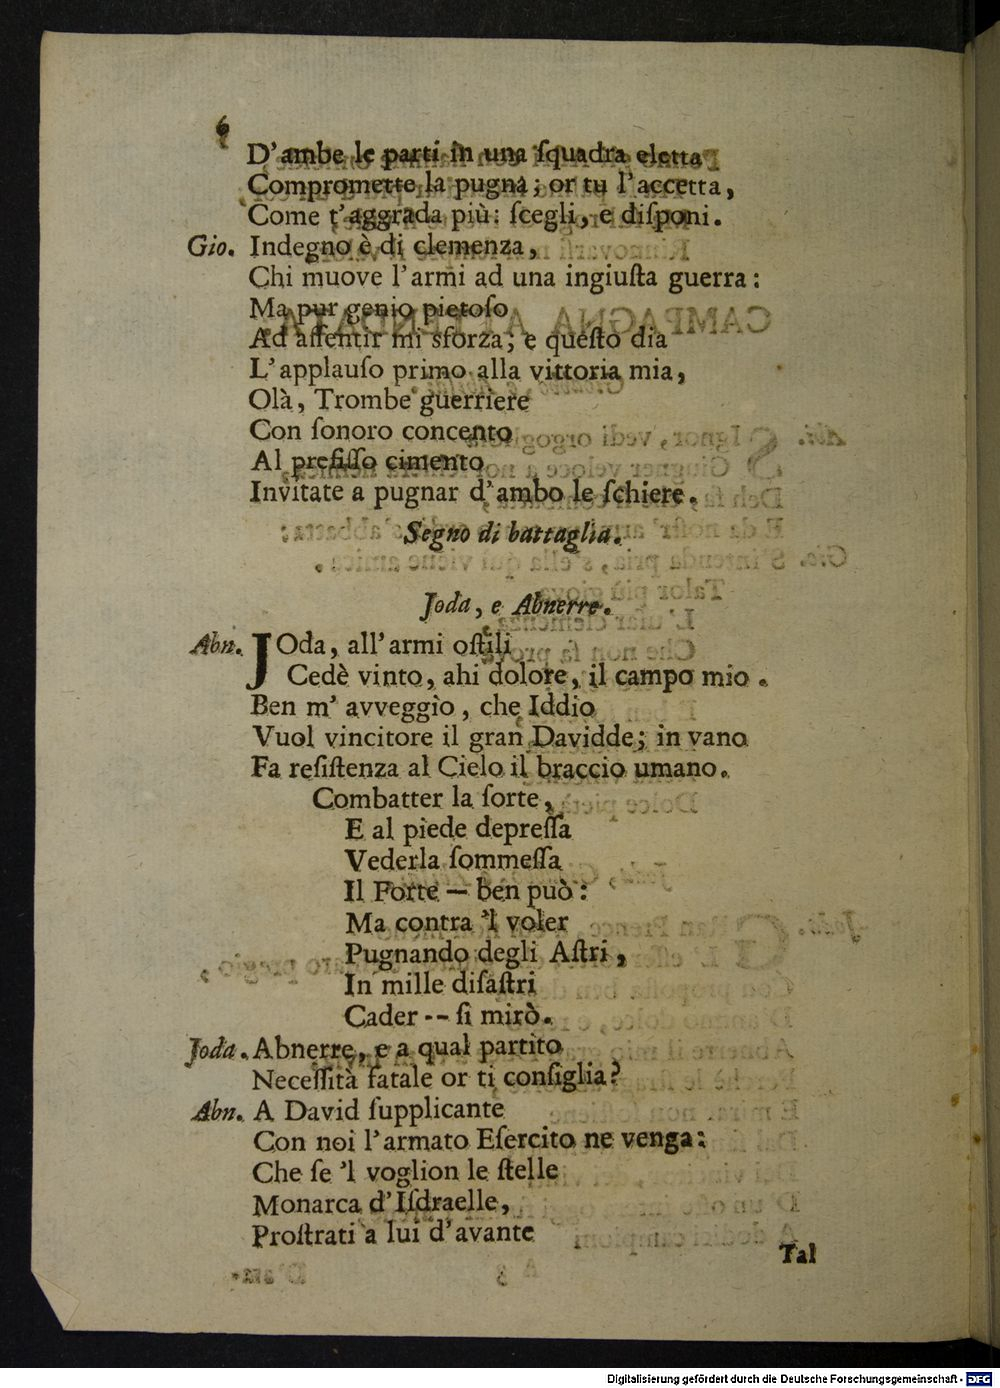 6
D'ambe le parti in una ſquadra eletta
Compromette la pugna; or tu l'accetta,
Come t'aggrada più: ſcegli, e diſponi.
Gio. Indegno è di clemenza,
Chi muove l'armi ad una ingiuſta guerra:
Ma pur genio pietoſo
Ad aſſentir mi sforza; e queſto dia
L'applauſo primo alla vittoria mia,
Olà, Trombe guerriere
Con ſonoro concento
Al prefiſſo cimento
Invitate a pugnar d'ambo le ſchiere.
Segno di battaglia.
Joda, e Abnerre.
Abn. JOda, all'armi oſtili
Cedè vinto, ahi dolore, il campo mio.
Ben m'avveggio, che Iddio
Vuol vincitore il gran Davidde; in vano
Fa reſiſtenza al Cielo il braccio umano.
Combatter la ſorte,
E al piede depreſſa
Vederla ſommeſſa
Il Forte — ben può:
Ma contra 'l voler
Pugnando degli Aſtri,
In mille diſaſtri
Cader -- ſi mirò.
Joda. Abnerre, e a qual partito
Neceſſità fatale or ti conſiglia?
Abn. A David ſupplicante
Con noi l'armato Eſercito ne venga:
Che ſe 'l voglion le ſtelle
Monarca d'Iſdraelle,
Proſtrati a lui d'avante
Tal
Digitalisierung gefördert durch die Deutsche Forschungsgemeinschaft - DFG